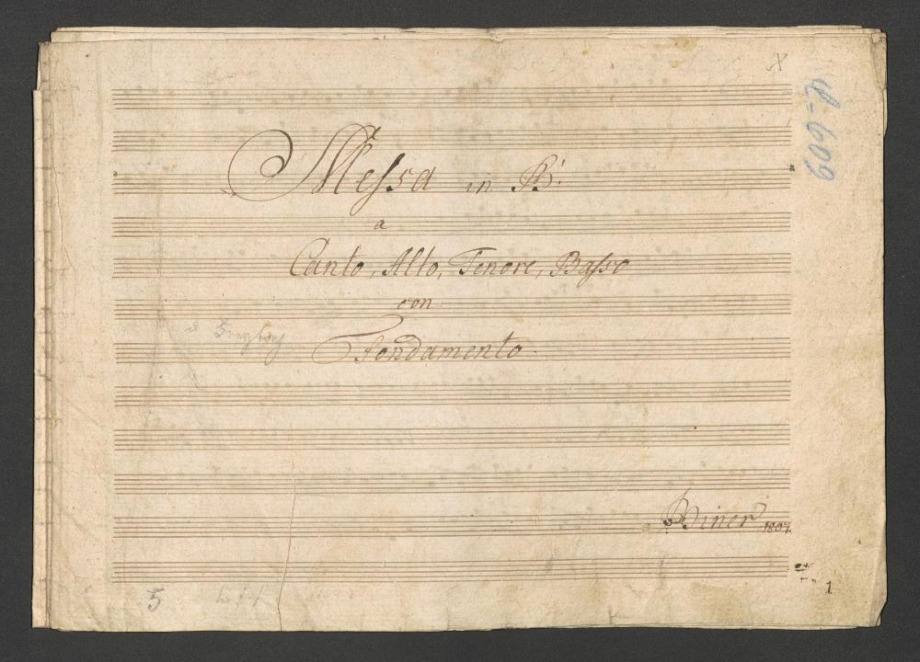 X
4-609
Messa in B.
a
Canto, Alto, Tenore, Basso
con
Fondamento
Biner 1807.
5
1